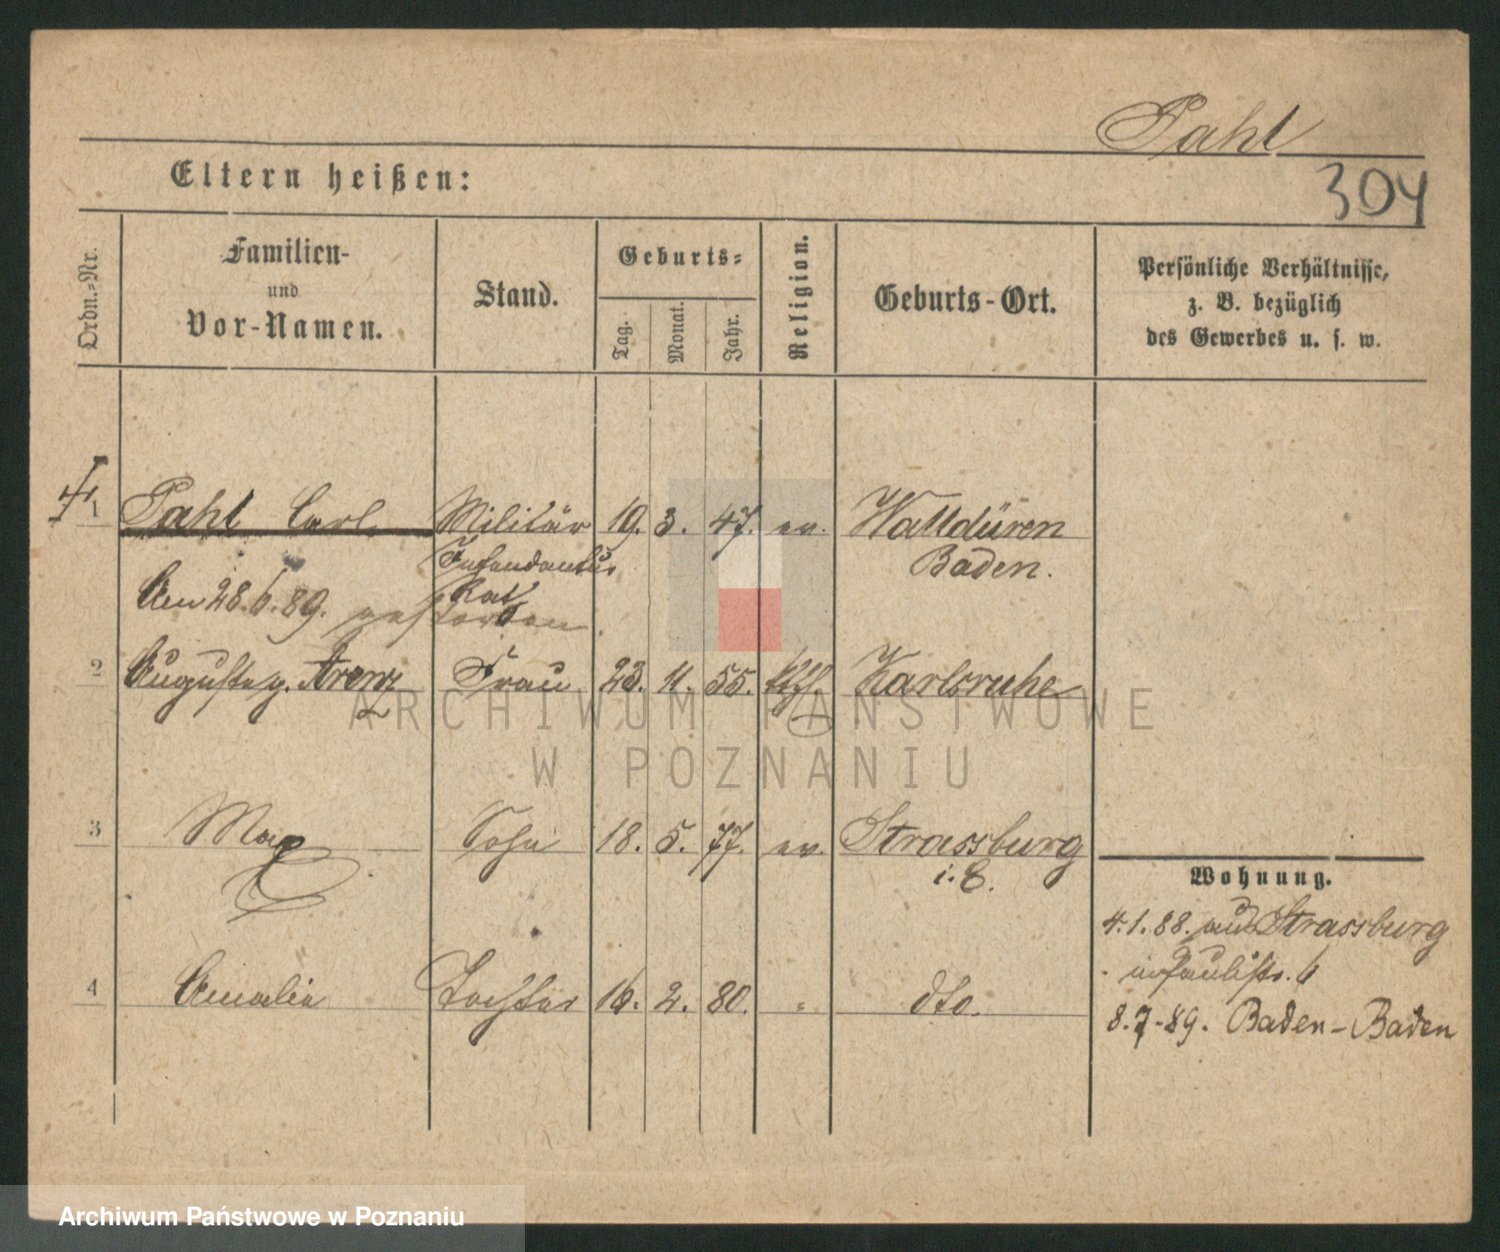 Pahl
304
Eltern heißen:
Ordn.-Nr.
Familien-
und
Vor-Namen.
Stand.
Geburts-
Tag.
Monat.
Jahr.
Religion.
Geburts-Ort.
Persönliche Verhältnisse,
z. B. bezüglich
des Gewerbes u. s. w.
1 Pahl Carl Militär 19. 3. 47. ev. Walldüren
Intendantur Baden.
Rat
Am 28.6.89. gestorben.
2 Auguste g. Arenz Frau 23. 11. 55. kth. Karlsruhe
3 Max Sohn 18. 5. 77. ev. Strassburg
i. E.
4 Amalie Tochter 16. 2. 80. " dto.
Wohnung.
4.1.88. aus Strassburg
in Paulistr. 6
8.7-89. Baden-Baden
ARCHIWUM PAŃSTWOWE
W POZNANIU
Archiwum Państwowe w Poznaniu